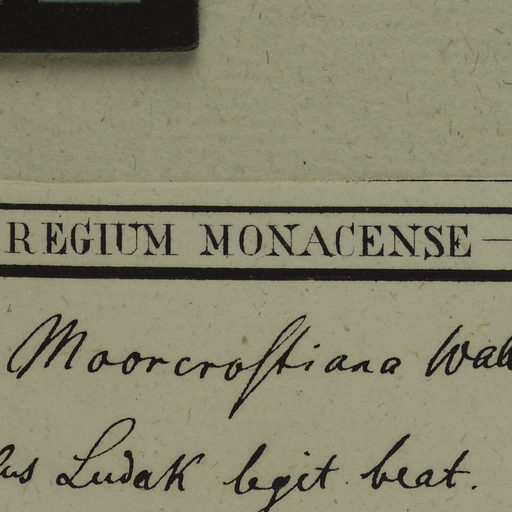 REGIUM MONACENSE
Moorcroftiana Wall
lus Ludak legit beat.